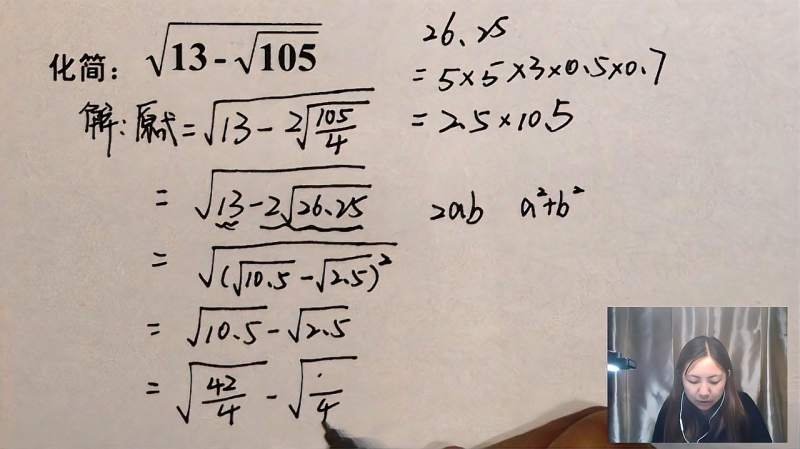 化简： √(13-√105)
解：原式=√(13-2√(105/4))
=√(13-2√26.25)
=√((√10.5-√2.5)²)
=√10.5-√2.5
=√(42/4)-√(/4)
26.25
=5×5×3×0.5×0.7
=2.5×10.5
2ab a²+b²